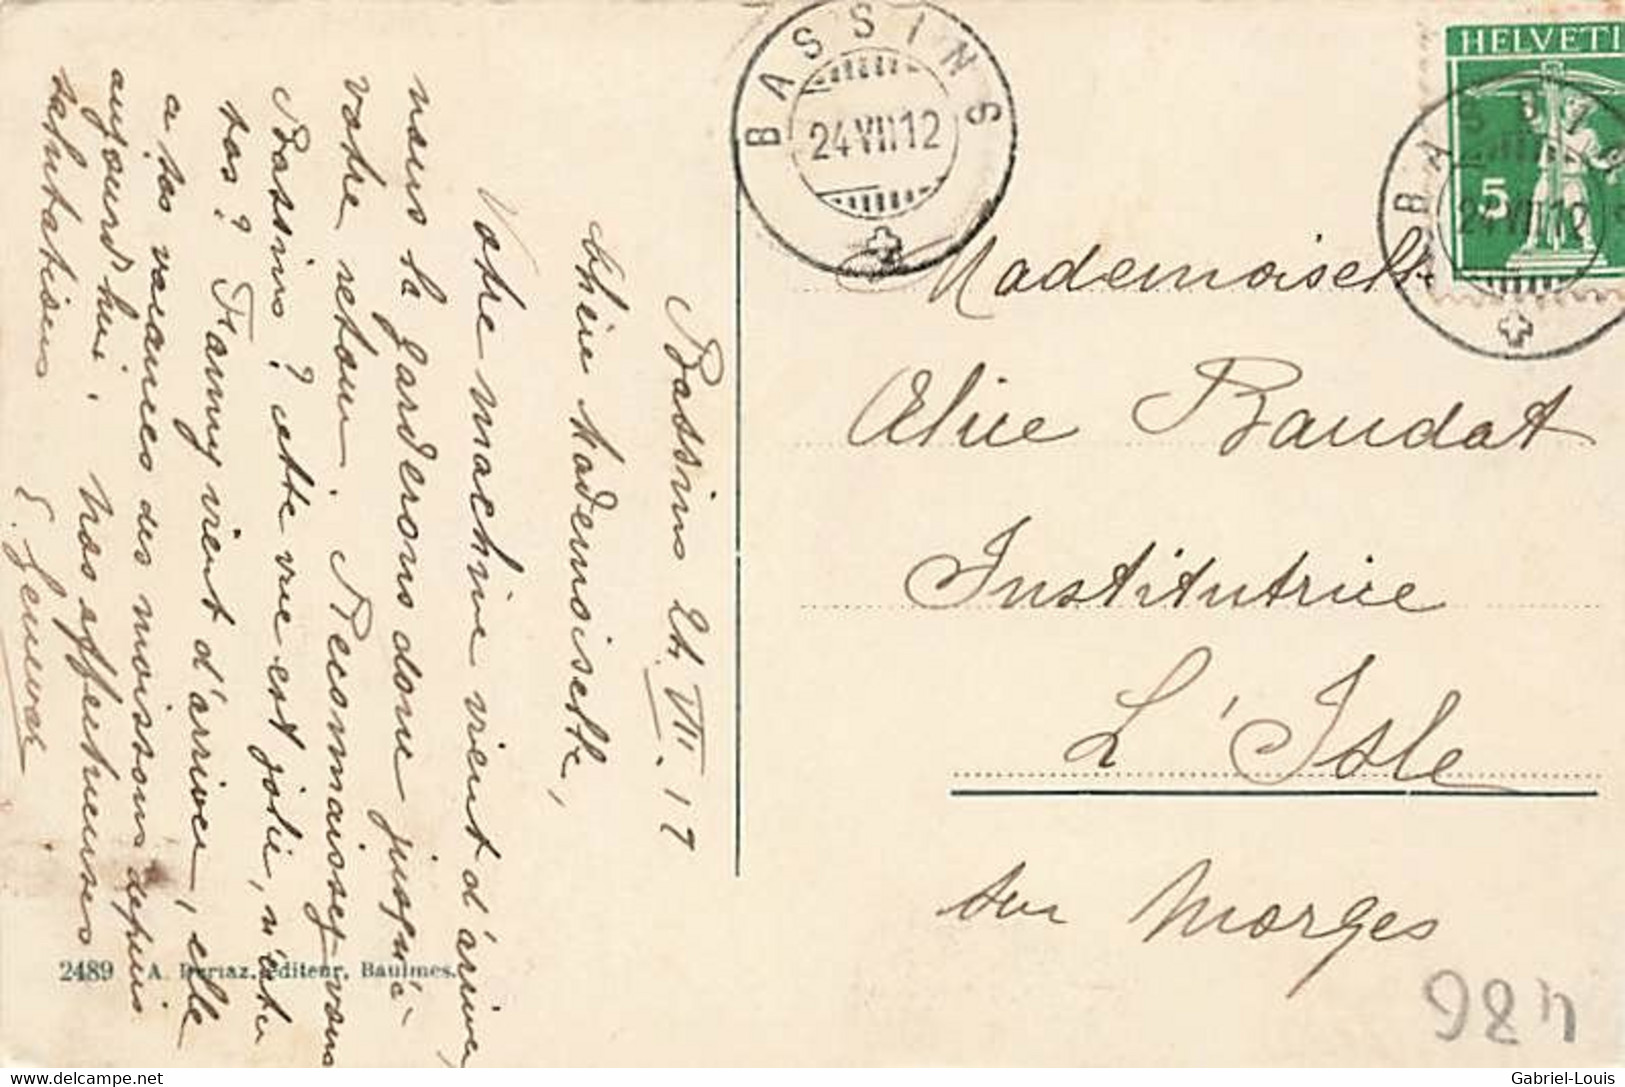 Bassins 24. VII. 12
Chère Mademoiselle,
Votre machine vient d'arriver
nous la garderons donc jusqu'à
votre retour. Reconnaissez-vous
Bassins? cette vue est jolie, n'est-ce
pas? Fanny vient d'arriver, elle
a ses vacances des moissons depuis
aujourd'hui. Nos affectueuses
salutations
BASSINS
24 VII 12
HELVETI
5
BASSINS
24 VII 12
Mademoiselle
Alice Baudat
Institutrice
L'Isle
sur Morges
2489 A. Deriaz, éditeur, Baulmes.
Gabriel-Louis